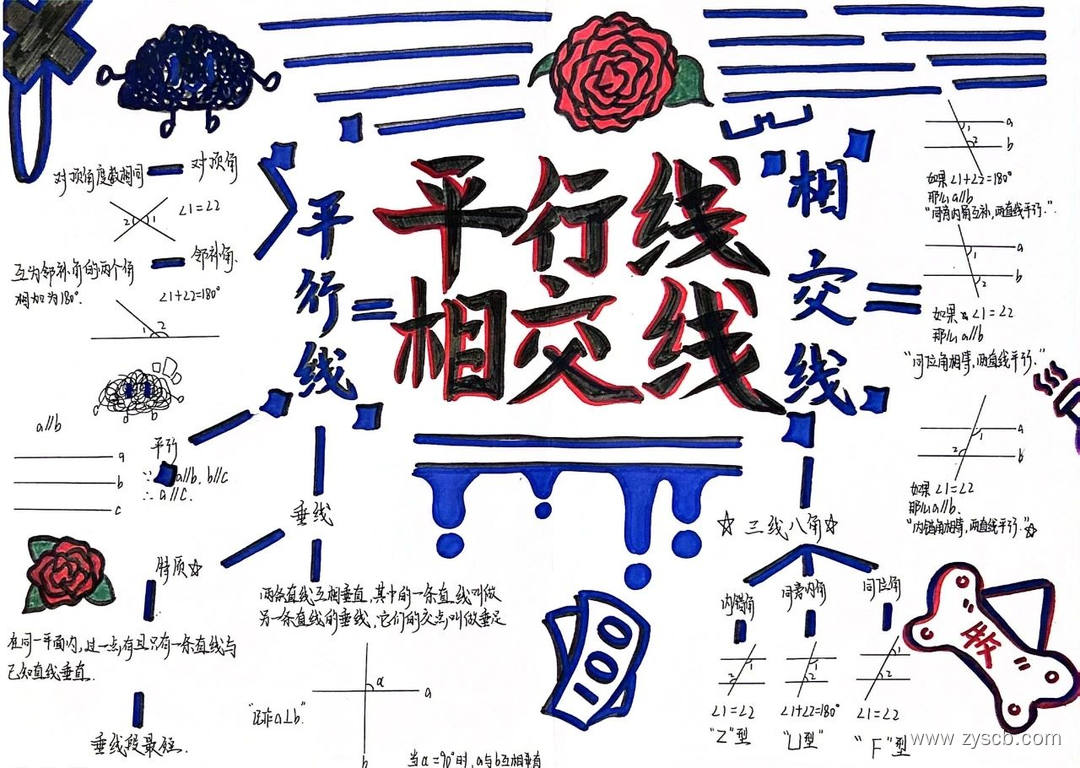 平行线
相交线
平行线
=
对顶角度数相同
对顶角
∠1=∠2
2
1
邻补角
互为邻补角的两个角
相加为180°.
∠1+∠2=180°
1
2
平行
a∥b
a
b
c
∵ a∥b, b∥c
∴ a∥c.
垂线
特质☆
在同一平面内,过一点有且只有一条直线与
已知直线垂直.
垂线段最短.
两条直线互相垂直,其中的一条直线叫做
另一条直线的垂线,它们的交点叫做垂足
"记作a⊥b"
α
a
b
当α=90°时,a与b互相垂直
100
相交线
=
1
2
a
b
如果∠1+∠2=180°
那么a∥b
"同旁内角互补,两直线平行."
1
2
a
b
如果 ∠1=∠2
那么a∥b
"同位角相等,两直线平行."
1
2
a
b
如果 ∠1=∠2
那么a∥b.
"内错角相等,两直线平行."☆
☆ 三线八角☆
内错角
同旁内角
同位角
1
2
1
2
1
2
∠1=∠2
∠1+∠2=180°
∠1=∠2
"Z"型
"U型"
"F"型
"版"
www.zyscb.com